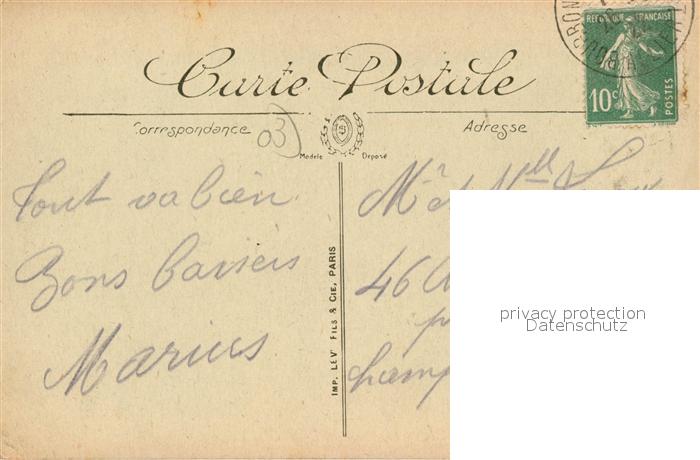 Carte Postale
Correspondance
Adresse
03
Modèle Déposé
REPUBLIQUE FRANÇAISE
10c
POSTES
Tout va bien
Bons baisers
Marius
IMP. LEVY FILS & CIE, PARIS
Mr et Mlle
46
privacy protection
Datenschutz